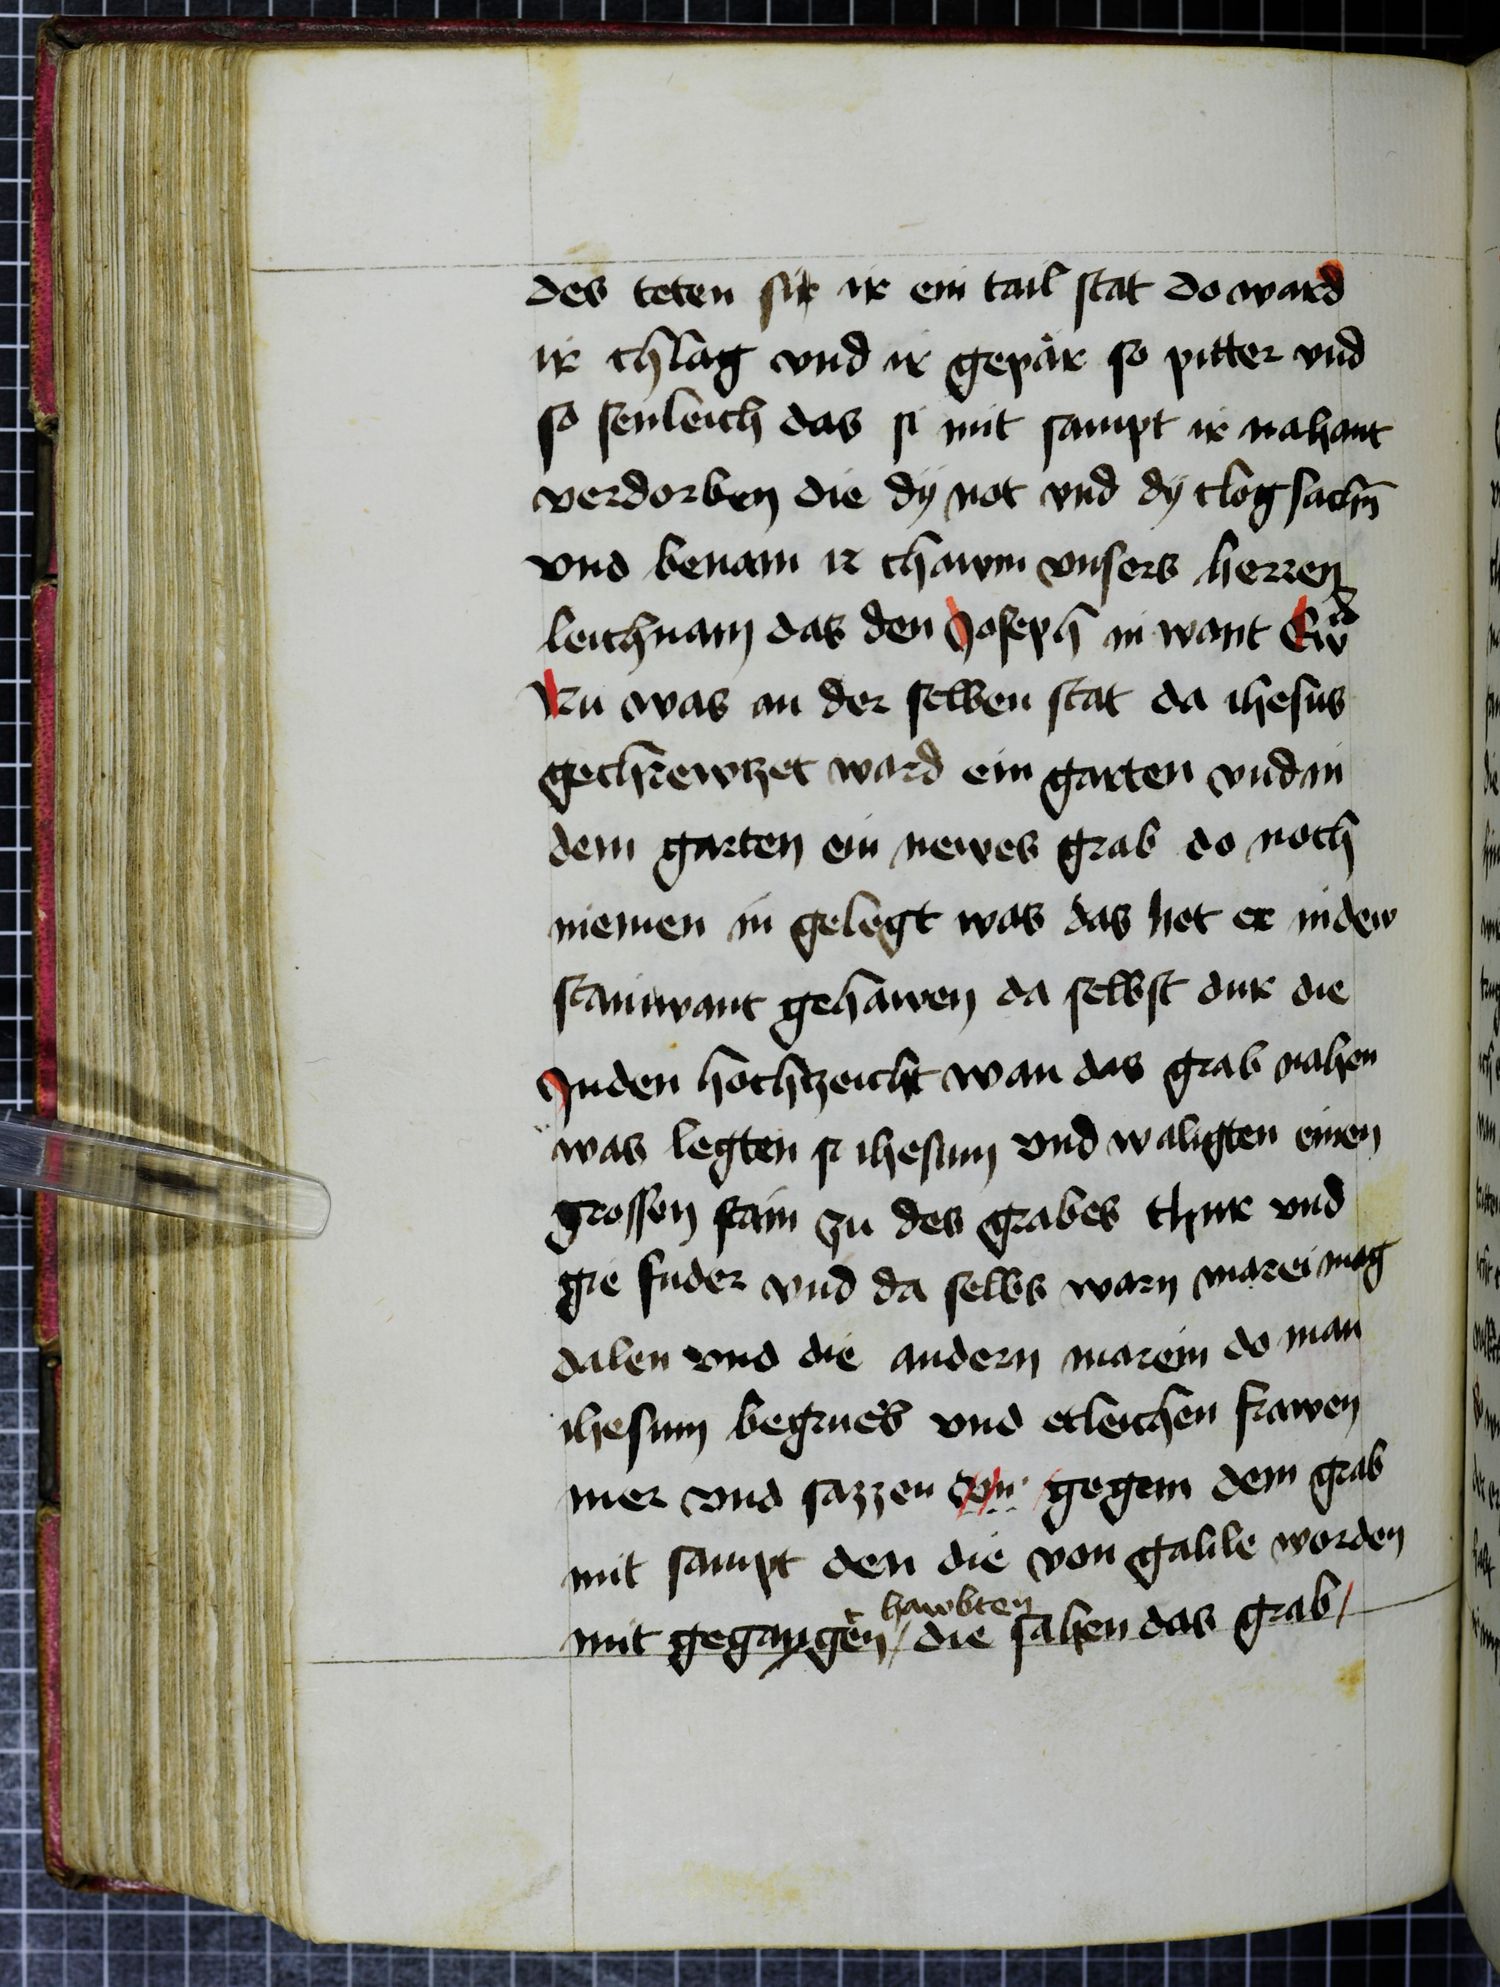 des teten sik ir ein tail stat do ward
ir chlag vnd ir gepär so pitter vnd
so senleich das si mit sampt ir nahant
verdorben die dÿ not vnd dÿ clog sachn̄
vnd benam ir chawm vnsers herren
leichnam das den Joseph in want Ewd
Nu was an der selben stat da ihesus
gechrewtzet ward ein garten vnd in
dem garten ein newes grab do noch
niemen in gelegt was das het er in dew
stainwant gehawen da selbst dur die
Juden hochtzeicht wan das grab nahen
was legten si ihesum vnd waligten einen
grossen stain zu des grabes thur vnd
gie fuder vnd da selbs warn marei mag
dalen vnd die andern marein do man
ihesum begrueb vnd etleichen frawen
mer vnd sazzen von gegem dem grab
mit sampt den die von galile worden
hawbten
mit gegangen / die sahen das grab /